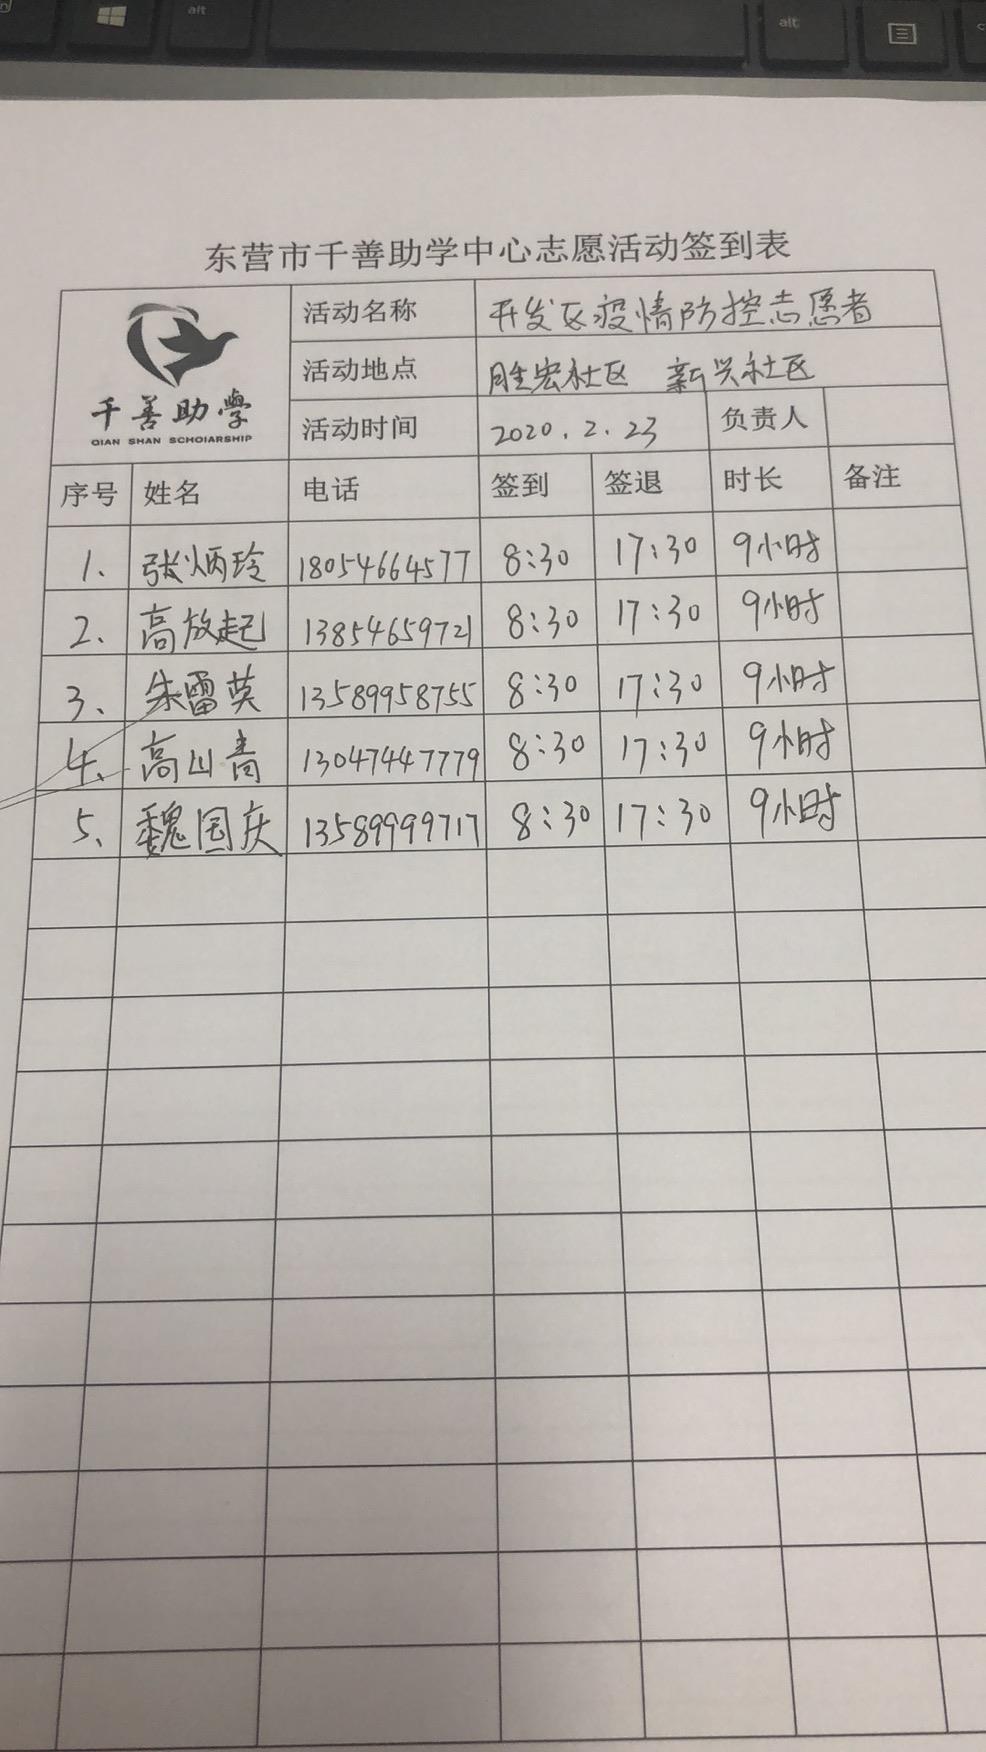 alt
alt
东营市千善助学中心志愿活动签到表
千善助学
QIAN SHAN SCHOIARSHIP
活动名称 开发区疫情防控志愿者
活动地点 胜宏社区 新兴社区
活动时间 2020.2.23 负责人
序号 姓名 电话 签到 签退 时长 备注
1、 张炳玲 18054664577 8:30 17:30 9小时
2、 高放起 13854659721 8:30 17:30 9小时
3、 朱雷英 13589958755 8:30 17:30 9小时
4、 高山青 13047447779 8:30 17:30 9小时
5、 魏国庆 13589999717 8:30 17:30 9小时